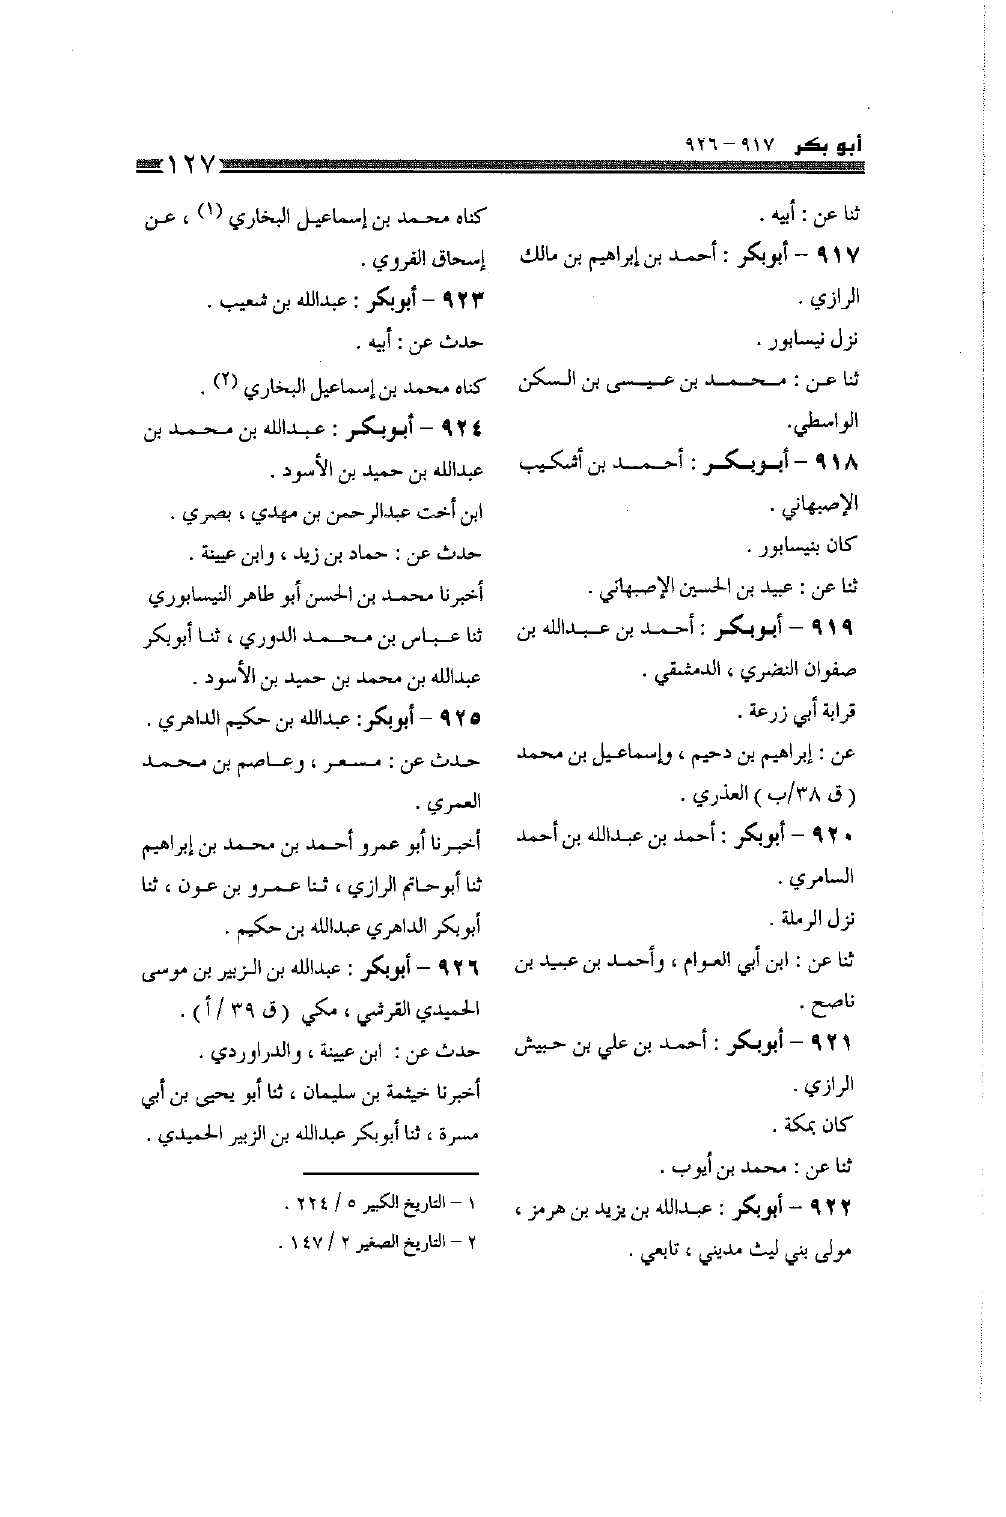 أبو بكر ٩١٧ – ٩٢٦
١٢٧
ثنا عن : أبيه .
٩١٧ – أبوبكر : أحمد بن إبراهيم بن مالك
الرازي .
نزل نيسابور .
ثنا عن : محمد بن عيسى بن السكن
الواسطي.
٩١٨ – أبوبكر : أحمد بن أشكيب
الإصبهاني .
كان بنيسابور .
ثنا عن : عبيد بن الحسين الإصبهاني .
٩١٩ – أبوبكر : أحمد بن عبدالله بن
صفوان النضري ، الدمشقي .
قرابة أبي زرعة .
عن : إبراهيم بن دحيم ، وإسماعيل بن محمد
( ق ٣٨/ب ) العذري .
٩٢٠ – أبوبكر : أحمد بن عبدالله بن أحمد
السامري .
نزل الرملة .
ثنا عن : ابن أبي العوام ، وأحمد بن عبيد بن
ناصح .
٩٢١ – أبوبكر : أحمد بن علي بن حبيش
الرازي .
كان بمكة .
ثنا عن : محمد بن أيوب .
٩٢٢ – أبوبكر : عبدالله بن يزيد بن هرمز ،
مولى بني ليث مديني ، تابعي .
كناه محمد بن إسماعيل البخاري (١) ، عن
إسحاق الفروي .
٩٢٣ – أبوبكر : عبدالله بن شعيب .
حدث عن : أبيه .
كناه محمد بن إسماعيل البخاري (٢) .
٩٢٤ – أبوبكر : عبدالله بن محمد بن
عبدالله بن حميد بن الأسود .
ابن أخت عبدالرحمن بن مهدي ، بصري .
حدث عن : حماد بن زيد ، وابن عيينة .
أخبرنا محمد بن الحسن أبو طاهر النيسابوري
ثنا عباس بن محمد الدوري ، ثنا أبوبكر
عبدالله بن محمد بن حميد بن الأسود .
٩٢٥ – أبوبكر: عبدالله بن حكيم الداهري .
حدث عن : مسعر ، وعاصم بن محمد
العمري .
أخبرنا أبو عمرو أحمد بن محمد بن إبراهيم
ثنا أبوحاتم الرازي ، ثنا عمرو بن عون ، ثنا
أبوبكر الداهري عبدالله بن حكيم .
٩٢٦ – أبوبكر : عبدالله بن الزبير بن موسى
الحميدي القرشي ، مكي ( ق ٣٩ / أ ) .
حدث عن : ابن عيينة ، والدراوردي .
أخبرنا خيثمة بن سليمان ، ثنا أبو يحيى بن أبي
مسرة ، ثنا أبوبكر عبدالله بن الزبير الحميدي .
١ – التاريخ الكبير ٥ / ٢٢٤ .
٢ – التاريخ الصغير ٢ / ١٤٧ .